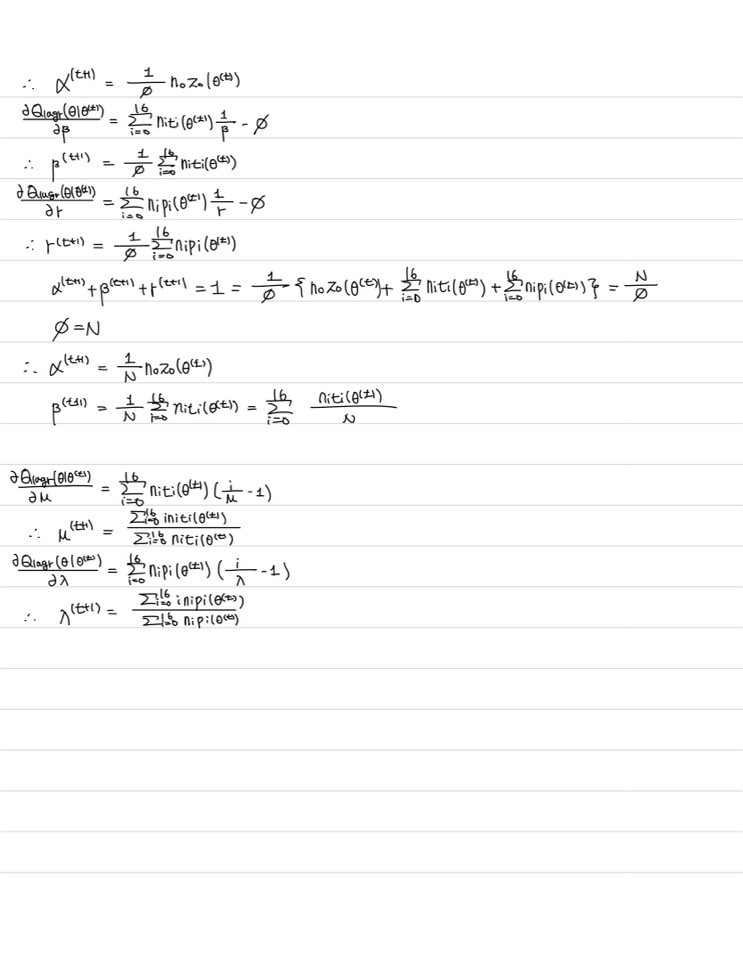 ∴ α^(t+1) = 1/∅ n₀z₀(θ^(t))
∂Q_lagr(θ|θ^(t))/∂β = Σ_{i=0}^{16} n_i t_i(θ^(t)) 1/β - ∅
∴ β^(t+1) = 1/∅ Σ_{i=0}^{16} n_i t_i(θ^(t))
∂Q_lagr(θ|θ^(t))/∂r = Σ_{i=0}^{16} n_i p_i(θ^(t)) 1/r - ∅
∴ r^(t+1) = 1/∅ Σ_{i=0}^{16} n_i p_i(θ^(t))
α^(t+1) + β^(t+1) + r^(t+1) = 1 = 1/∅ { n₀z₀(θ^(t)) + Σ_{i=0}^{16} n_i t_i(θ^(t)) + Σ_{i=0}^{16} n_i p_i(θ^(t)) } = N/∅
∅ = N
∴ α^(t+1) = 1/N n₀z₀(θ^(t))
β^(t+1) = 1/N Σ_{i=0}^{16} n_i t_i(θ^(t)) = Σ_{i=0}^{16} n_i t_i(θ^(t))/N
∂Q_lagr(θ|θ^(t))/∂μ = Σ_{i=0}^{16} n_i t_i(θ^(t)) (i/μ - 1)
∴ μ^(t+1) = Σ_{i=0}^{16} i n_i t_i(θ^(t)) / Σ_{i=0}^{16} n_i t_i(θ^(t))
∂Q_lagr(θ|θ^(t))/∂λ = Σ_{i=0}^{16} n_i p_i(θ^(t)) (i/λ - 1)
∴ λ^(t+1) = Σ_{i=0}^{16} i n_i p_i(θ^(t)) / Σ_{i=0}^{16} n_i p_i(θ^(t))